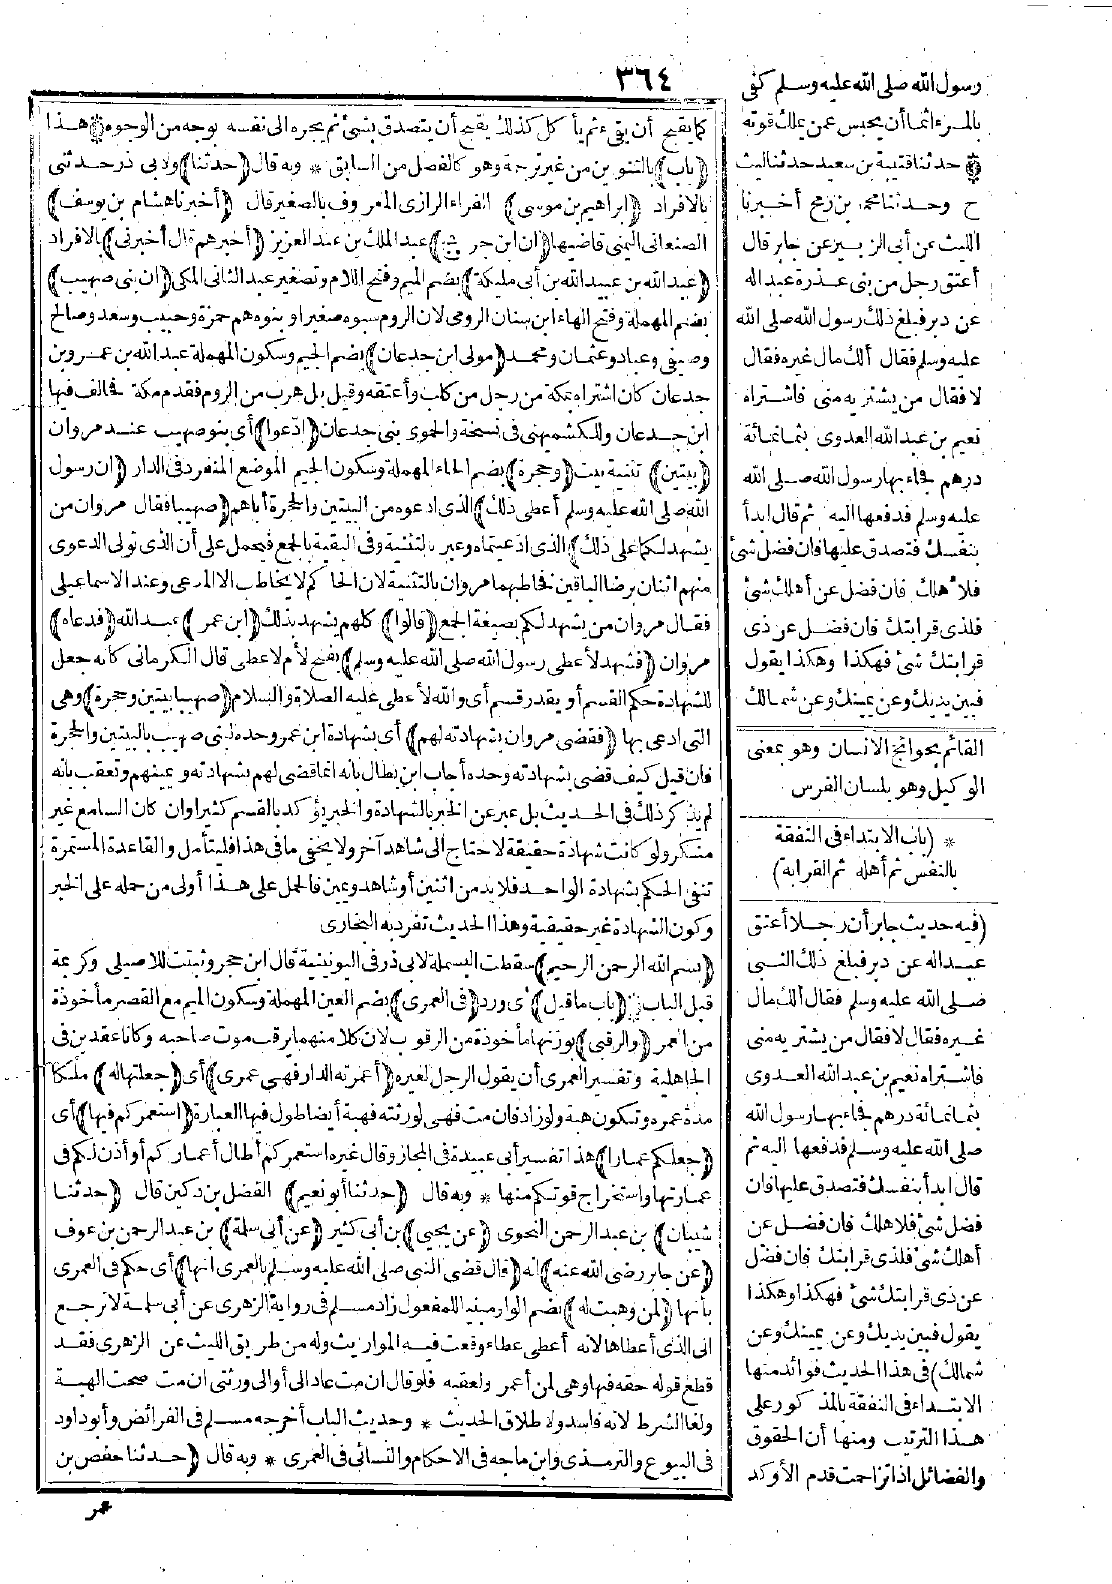 ٣٦٤
كما يقبح أن يقيء ثم يأكل كذلك يقبح أن يتصدق بشئ ثم يجره الى نفسه بوجه من الوجوه هذا
(باب) بالتنوين من غير ترجمة وهو كالفصل من السابق * وبه قال (حدثنا) ولابى ذر حدثنى
بالافراد (ابراهيم بن موسى) الفراء الرازى المعروف بالصغير قال (أخبرنا هشام بن يوسف)
الصنعانى اليمنى قاضيها (ان ابن جريج) عبد الملك بن عبد العزيز (أخبرهم قال أخبرنى) بالافراد
(عبد الله بن عبيد الله بن أبى مليكة) بضم الميم وفتح اللام وتصغير عبد الثانى المكى (ان بنى صهيب)
بضم المهملة وفتح الهاء ابن سنان الرومى لان الروم سبوه صغيرا وبنوه هم حمزة وحبيب وسعد وصالح
وصيفى وعباد وعثمان ومحمد (مولى ابن جدعان) بضم الجيم وسكون المهملة عبد الله بن عمرو بن
جدعان كان اشتراه بمكة من رجل من كلب وأعتقه وقيل بل هرب من الروم فقدم مكة فحالف فيها
ابن جدعان وللكشميهنى فى نسخة والحموى بنى جدعان (ادّعوا) أى بنو صهيب عند مروان
(بيتين) تثنية بيت (وحجرة) بضم الحاء المهملة وسكون الجيم الموضع المنفرد فى الدار (ان رسول
الله صلى الله عليه وسلم أعطى ذلك) الذى ادعوه من البيتين والحجرة أباهم (صهيبا فقال مروان من
يشهد لكما على ذلك) الذى ادعيتماه وعبر بالتثنية وفى البقية بالجمع فيحمل على أن الذى تولى الدعوى
منهم اثنان برضا الباقين فخاطبهما مروان بالتثنية لان الحاكم لا يخاطب الا المدعى وعند الاسماعيلى
فقال مروان من يشهد لكم بصيغة الجمع (قالوا) كلهم يشهد بذلك (ابن عمر) عبد الله (فدعاه)
مروان (فشهد لأعطى رسول الله صلى الله عليه وسلم) بفتح لأم لاعطى قال الكرمانى كأنه جعل
للشهادة حكم القسم أو يقدر قسم أى والله لأعطى عليه الصلاة والسلام (صهيبا بيتين وحجرة) وهى
التى ادعى بها (فقضى مروان بشهادته لهم) أى بشهادة ابن عمر وحده لبنى صهيب بالبيتين والحجرة
فان قيل كيف قضى بشهادته وحده أجاب ابن بطال بأنه انما قضى لهم بشهادته ويمينهم وتعقب بأنه
لم يذكر ذلك فى الحديث بل عبر عن الخبر بالشهادة والخبر يؤكد بالقسم كثيرا وان كان السامع غير
منكر ولو كانت شهادة حقيقة لاحتاج الى شاهد آخر ولا يخفى ما فى هذا فليتأمل والقاعدة المستمرة
تنفى الحكم بشهادة الواحد فلا بد من اثنين أو شاهد وعين فالحمل على هذا أولى من حمله على الخبر
وكون الشهادة غير حقيقية وهذا الحديث تفرد به البخارى
(بسم الله الرحمن الرحيم) سقطت البسملة لابى ذر فى اليونينية قال ابن حجر وثبتت للاصيلى وكريمة
قبل الباب (باب ما قيل) أى ورد (فى العمرى) بضم العين المهملة وسكون الميم مع القصر مأخوذة
من العمر (والرقبى) بوزنها مأخوذة من الرقوب لان كلا منهما يرقب موت صاحبه وكانا عقدين فى
الجاهلية وتفسير العمرى أن يقول الرجل لغيره (أعمرته الدار فهى عمرى) أى (جعلتها له) ملكا
مدة عمره وتكون هبة ولو زاد فان مت فهى لورثته فهبة أيضا طول فيها العبارة (استعمركم فيها) أى
(جعلكم عمارا) هذا تفسير أبى عبيدة فى المجاز وقال غيره استعمركم أطال أعماركم أو أذن لكم فى
عمارتها واستخراج قوتكم منها * وبه قال (حدثنا أبو نعيم) الفضل بن دكين قال (حدثنا
شيبان) بن عبد الرحمن النحوى (عن يحيى) بن أبى كثير (عن أبى سلمة) بن عبد الرحمن بن عوف
(عن جابر رضى الله عنه) انه (قال قضى النبى صلى الله عليه وسلم بالعمرى انها) أى حكم فى العمرى
بأنها (لمن وهبت له) بضم الواو مبنيا للمفعول زاد مسلم فى رواية الزهرى عن أبى سلمة لا ترجع
الى الذى أعطاها لانه أعطى عطاء وقعت فيه المواريث وله من طريق الليث عن الزهرى فقد
قطع قوله حقه فيها وهى لمن أعمر ولعقبه فلو قال ان مت عاد الى أو الى ورثتى ان مت صحت الهبة
ولغا الشرط لانه فاسد ولاطلاق الحديث * وحديث الباب أخرجه مسلم فى الفرائض وأبو داود
فى البيوع والترمذى وابن ماجه فى الاحكام والنسائى فى العمرى * وبه قال (حدثنا حفص بن
عمر
رسول الله صلى الله عليه وسلم كفى
بالمرء اثما أن يحبس عمن يملك قوته
حدثنا قتيبة بن سعيد حدثنا ليث
ح وحدثنا محمد بن رمح أخبرنا
الليث عن أبى الزبير عن جابر قال
أعتق رجل من بنى عذرة عبدا له
عن دبر فبلغ ذلك رسول الله صلى الله
عليه وسلم فقال ألك مال غيره فقال
لا فقال من يشتريه منى فاشتراه
نعيم بن عبد الله العدوى بثمانمائة
درهم فجاء بها رسول الله صلى الله
عليه وسلم فدفعها اليه ثم قال ابدأ
بنفسك فتصدق عليها فان فضل شئ
فلأهلك فان فضل عن أهلك شئ
فلذى قرابتك فان فضل عن ذى
قرابتك شئ فهكذا وهكذا يقول
فبين يديك وعن يمينك وعن شمالك
القائم بحوائج الانسان وهو بمعنى
الوكيل وهو بلسان الفرس
* (باب الابتداء فى النفقة
بالنفس ثم أهله ثم القرابة)
(فيه حديث جابر أن رجلا أعتق
عبدا له عن دبر فبلغ ذلك النبى
صلى الله عليه وسلم فقال ألك مال
غيره فقال لا فقال من يشتريه منى
فاشتراه نعيم بن عبد الله العدوى
بثمانمائة درهم فجاء بها رسول الله
صلى الله عليه وسلم فدفعها اليه ثم
قال ابدأ بنفسك فتصدق عليها فان
فضل شئ فلاهلك فان فضل عن
أهلك شئ فلذى قرابتك فان فضل
عن ذى قرابتك شئ فهكذا وهكذا
يقول فبين يديك وعن يمينك وعن
شمالك) فى هذا الحديث فوائد منها
الابتداء فى النفقة بالمذكور على
هذا الترتيب ومنها أن الحقوق
والفضائل اذا تزاحمت قدم الأوكد